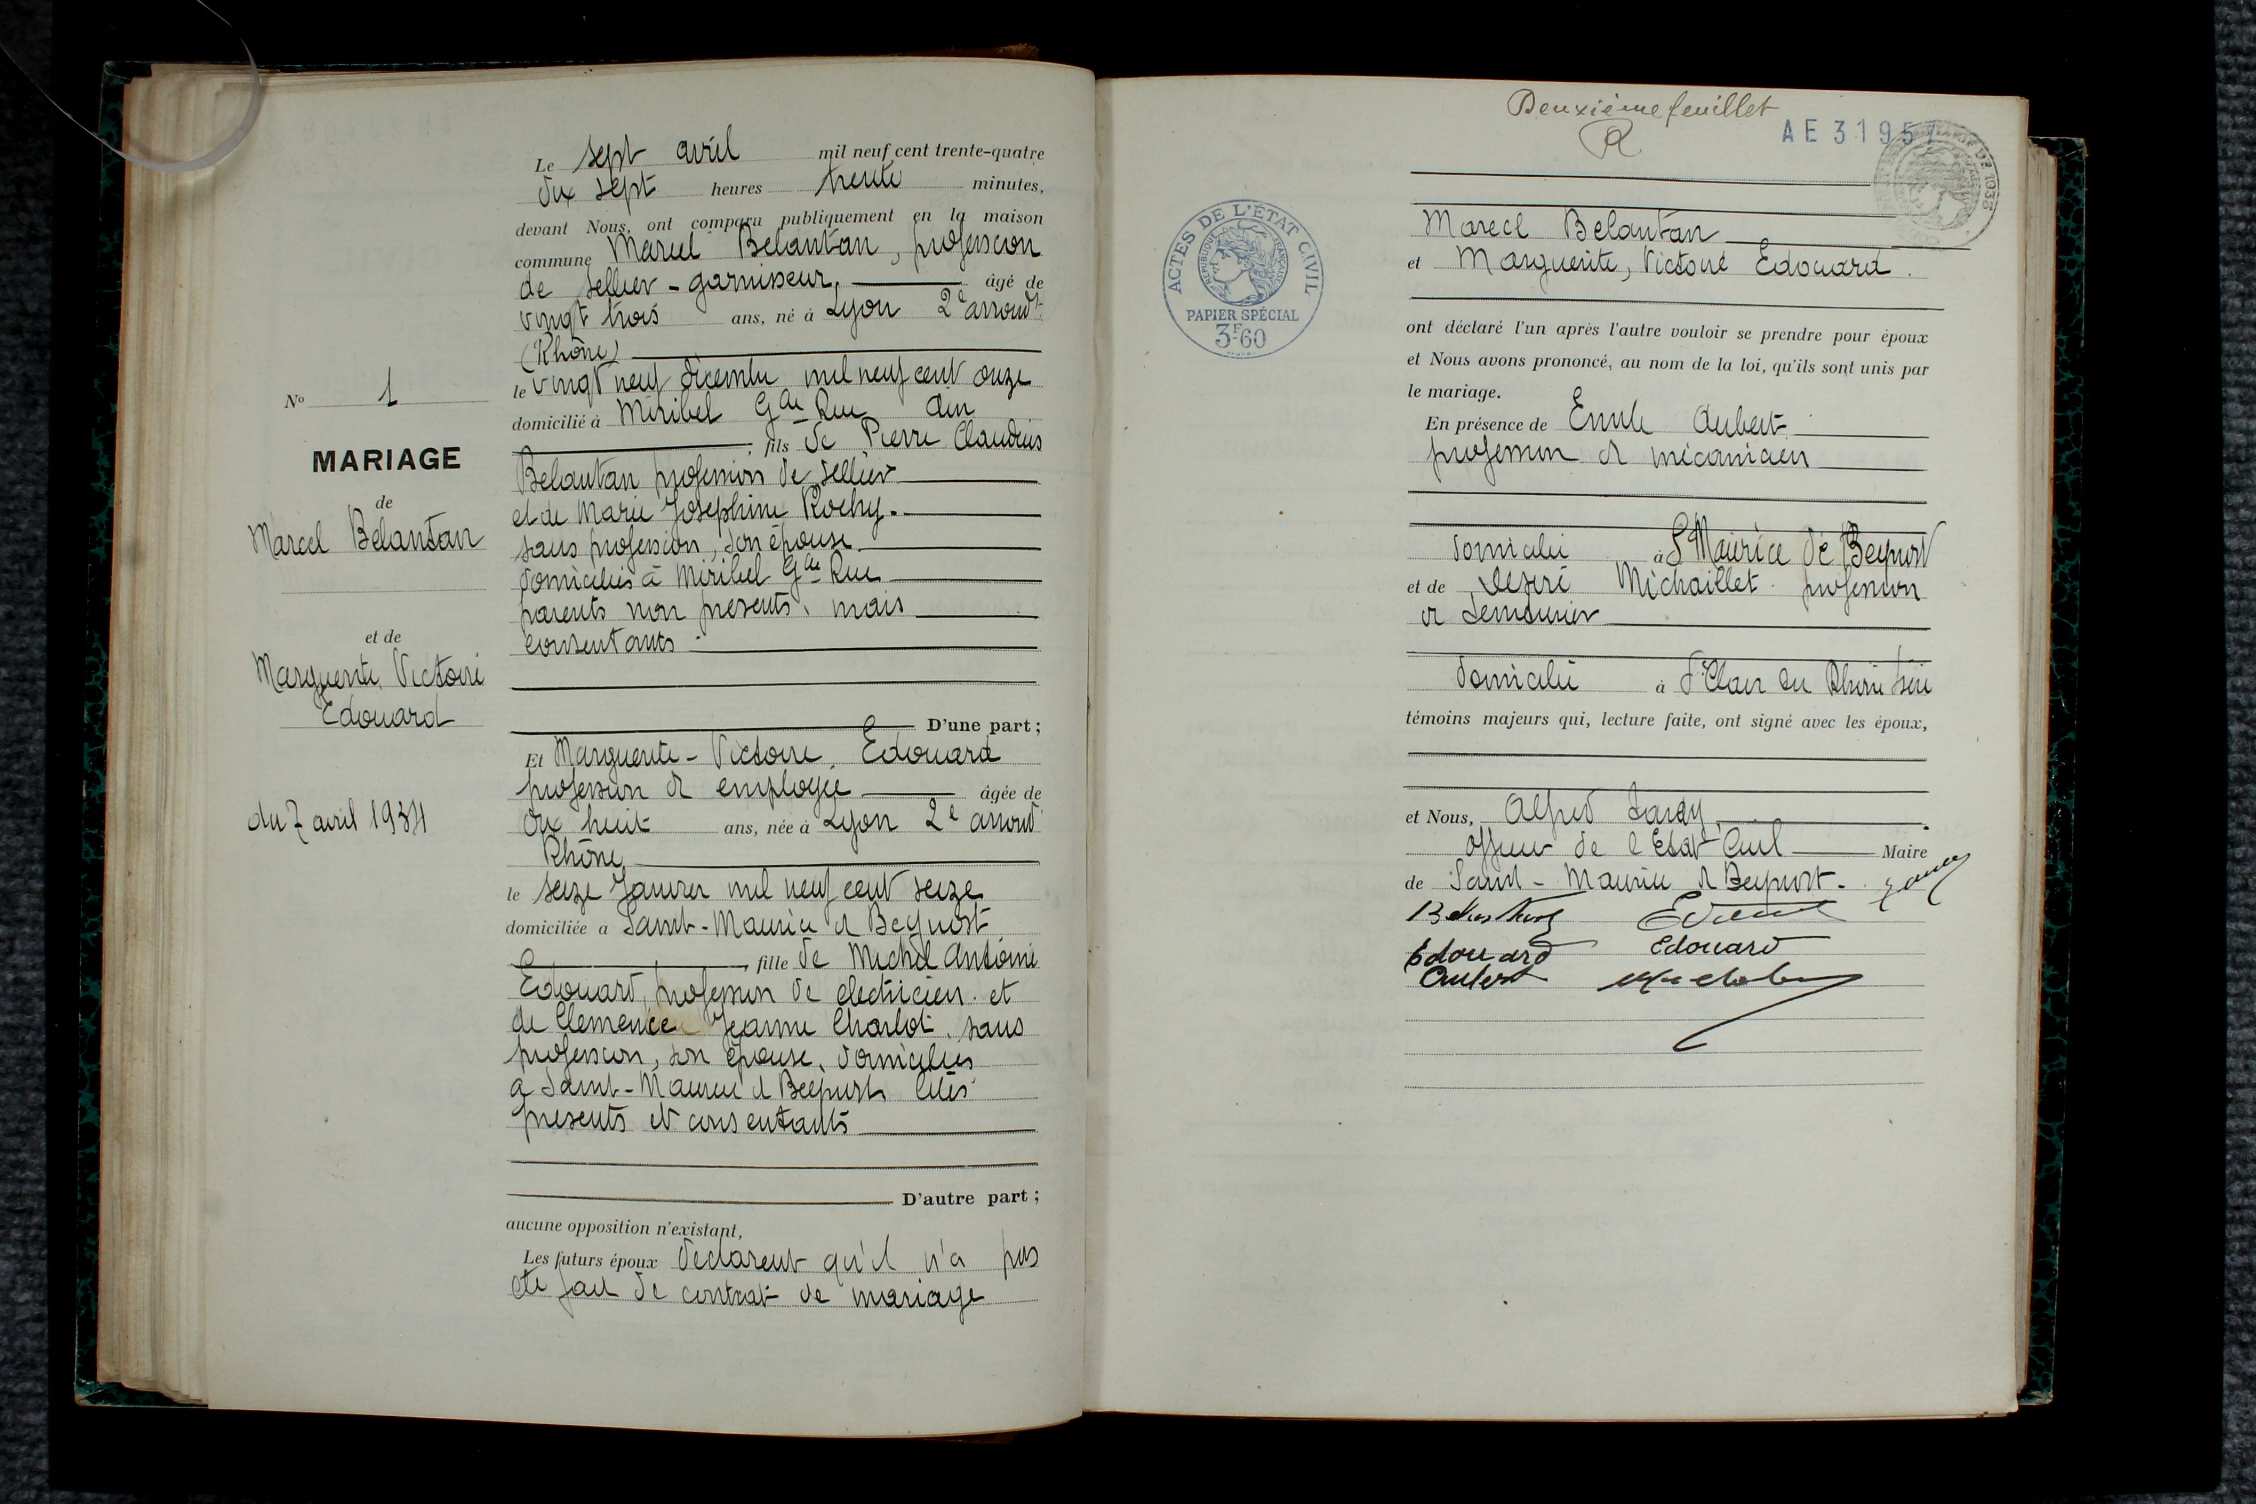 N° 1
MARIAGE
de
Marcel Belantan
et de
Marguerite Victoire
Edouard
du 7 avril 1934
Le sept avril mil neuf cent trente-quatre
dix sept heures trente minutes,
devant Nous, ont comparu publiquement en la maison
commune Marcel Belantan, profession
de sellier-garnisseur, âgé de
vingt trois ans, né à Lyon 2e arrondt
(Rhône)
le vingt neuf décembre mil neuf cent onze
domicilié à Miribel Gde Rue Ain
; fils de Pierre Claudius
Belantan profession de sellier
et de Marie Josephine Rochy.
sans profession, son épouse
domiciliés à Miribel Gde Rue
parents non présents, mais
consentants.
D'une part ;
Et Marguerite-Victoire, Edouard
profession d employée âgée de
dix huit ans, née à Lyon 2e arrond
Rhône
le seize Janvier mil neuf cent seize
domiciliée a Saint-Maurice d Beynost
, fille de Michel Antoine
Edouard, profession de electricien. et
de Clemence Jeanne Charlot, sans
profession, son épouse, domiciliés
a Saint-Maurice d Beynost
présents et consentants
D'autre part ;
aucune opposition n'existant,
Les futurs époux declarent qu'il n'a pas
ete fait de contrat de mariage
Deuxième feuillet
AE 31957
ACTES DE L'ÉTAT CIVIL
RÉPUBLIQUE FRANÇAISE
PAPIER SPÉCIAL
3F60
Marcel Belantan
et Marguerite, Victoire Edouard.
ont déclaré l'un après l'autre vouloir se prendre pour époux
et Nous avons prononcé, au nom de la loi, qu'ils sont unis par
le mariage.
En présence de Emile Aubert
profession d mécanicien
domicilié à St Maurice de Beynost
et de Desiré Michaillet profession
d
domicilié à St Clair du Rhône Isère
témoins majeurs qui, lecture faite, ont signé avec les époux,
et Nous, Alfred
officier de l'Etat Civil Maire
de Saint-Maurice d Beynost.
Edouard
Edouard
Aubert